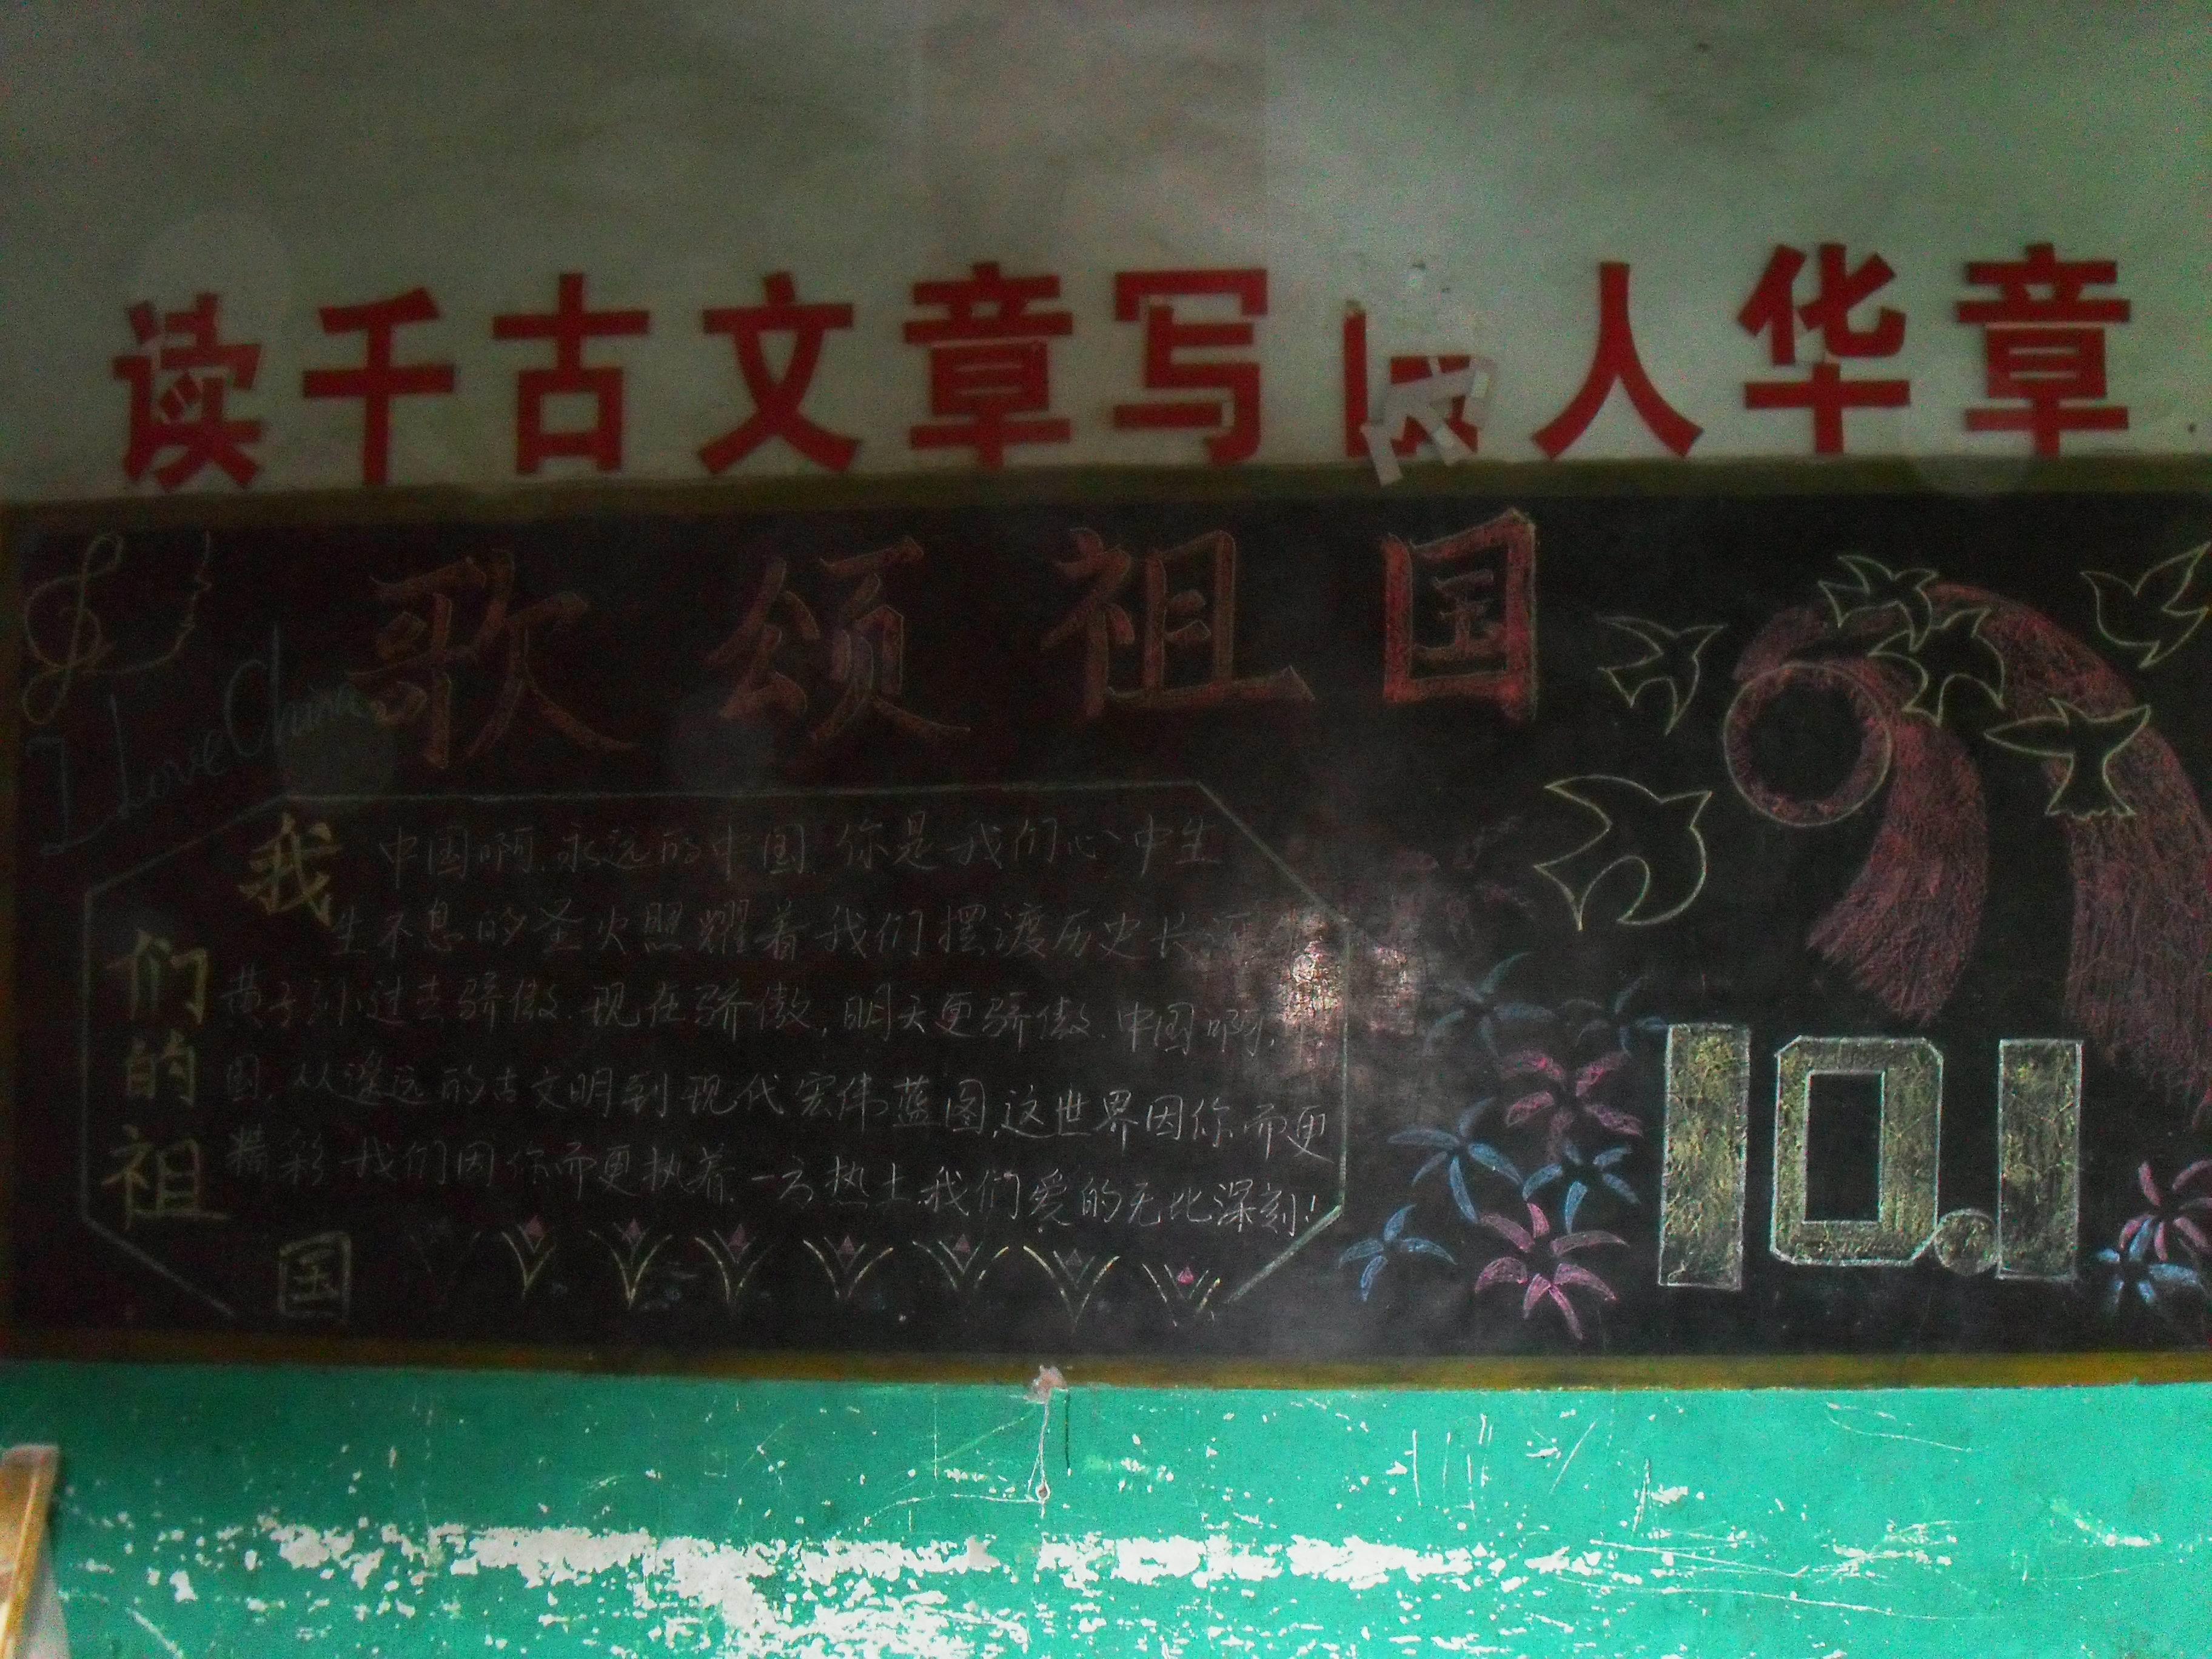 读千古文章写人华章
歌颂祖国
I Love China
我们的祖国
中国啊,永远的中国,你是我们心中生
生不息的圣火照耀着我们摆渡历史长河
黄子孙过去骄傲.现在骄傲,明天更骄傲.中国啊,
国,从遥远的古文明到现代宏伟蓝图,这世界因你而更
精彩我们因你而更执着.一方热土我们爱的无比深刻!
10.1